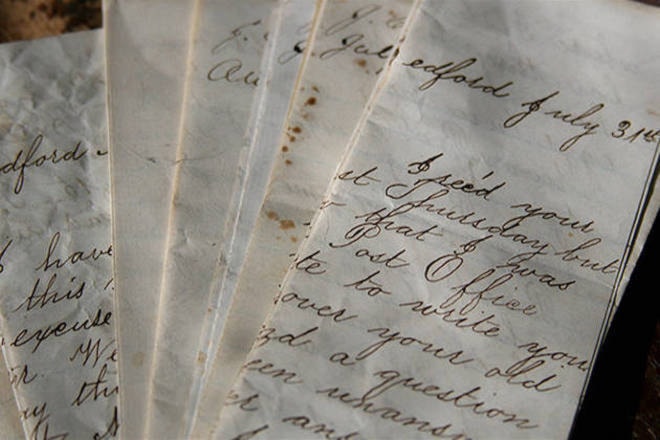 dford
I have
this
excuse
We
this
J.
Au
J.
J.
Jul
edford July 31st
I rec'd your
st Thursday but
that I was
Post Office
te to write you
over your old
a question
een unansw